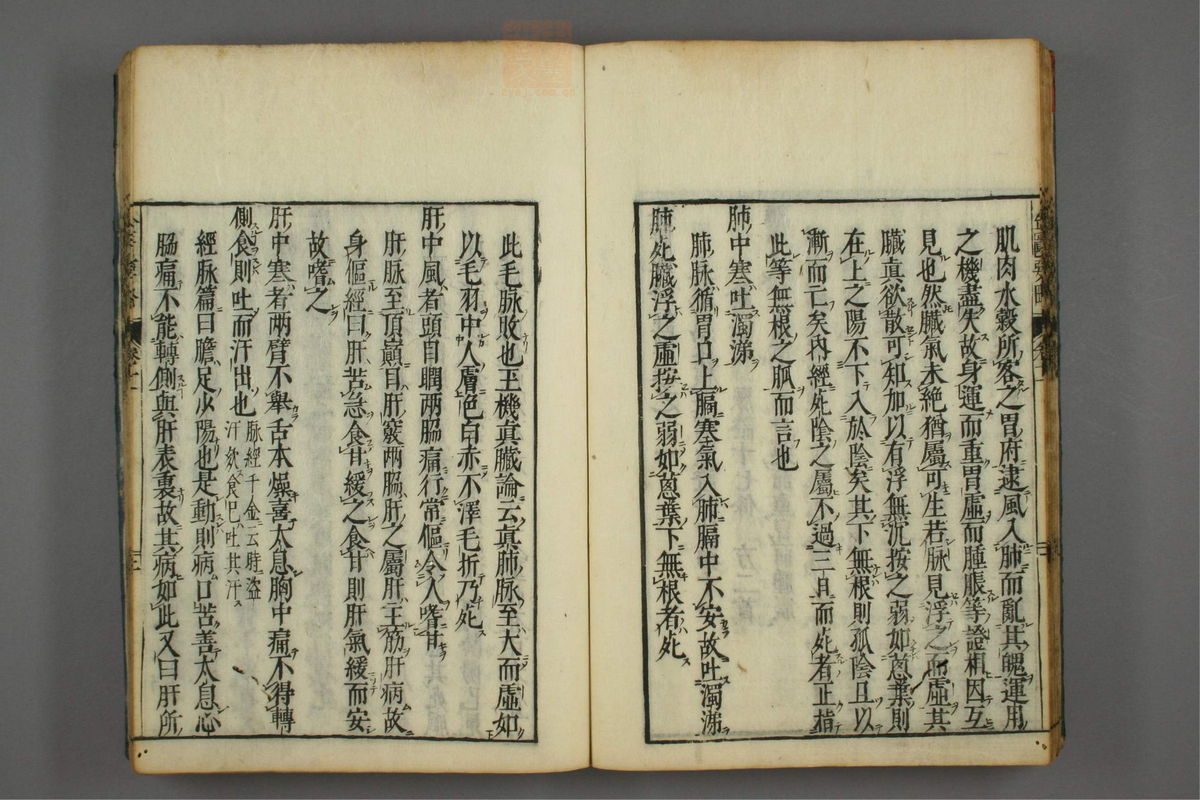 肌肉水穀所客之胃府逮風入肺而亂其魄運用
之機盡失故身運而重胃虛而腫脹等證相因互
見也然臟氣未絕猶屬可生若脉見浮之而虛其
臟真欲散可知加以有浮無沉按之弱如蔥葉則
在上之陽不下入於陰矣其下無根則孤陰且以
漸而亡矣內經死陰之屬不過三日而死者正指
此等無根之脈而言也
肺中寒吐濁涕
肺脉循胃口上膈塞氣入肺膈中不安故吐濁涕
肺死臟浮之虛按之弱如蔥葉下無根者死
此毛脉敗也玉機真臟論云真肺脉至大而虛如
以毛羽中人膚色白赤不澤毛折乃死
肝中風者頭目瞤兩脇痛行常傴令人嗜甘
肝脉至頂巔目肝竅兩脇肝之屬肝主筋肝病故
身傴經曰肝苦急食甘緩之食甘則肝氣緩而安
故嗜之
肝中寒者兩臂不舉舌本燥喜太息胸中痛不得轉
側食則吐而汗出也脉經千金云時盜汗欬食巳吐其汁
經脉篇曰膽足少陽也是動則病口苦善太息心
脇痛不能轉側與肝表裏故其病如此又曰肝所